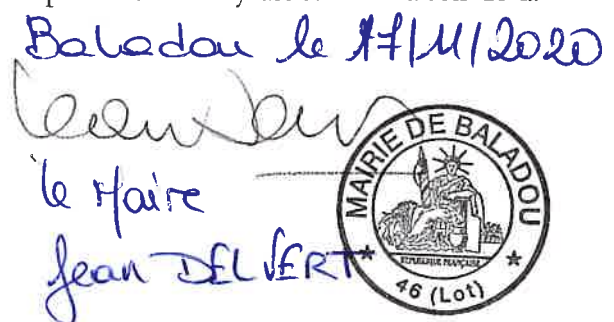 Baladou le 17/11/2020
le Maire
Jean DELVERT
MAIRIE DE BALADOU
RÉPUBLIQUE FRANÇAISE
* 46 (Lot) *